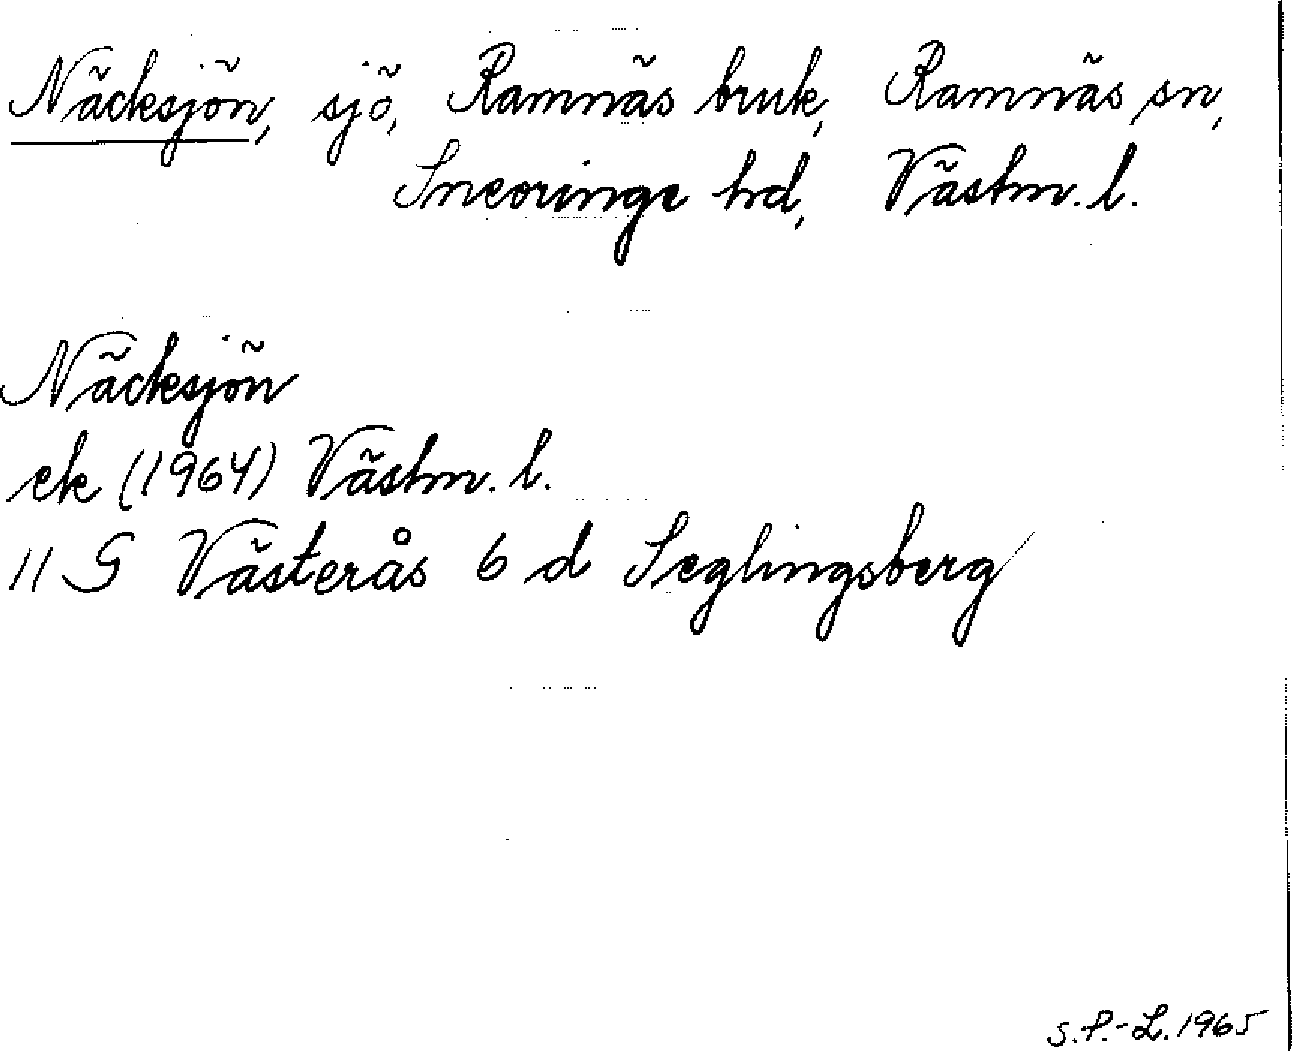 Näcksjön, sjö, Ramnäs bruk, Ramnäs sn,
Snevringe hd, Västm. l.
Näcksjön
ek (1964) Västm. l.
11 G Västerås 6 d Seglingsberg
S.P.-L. 1965